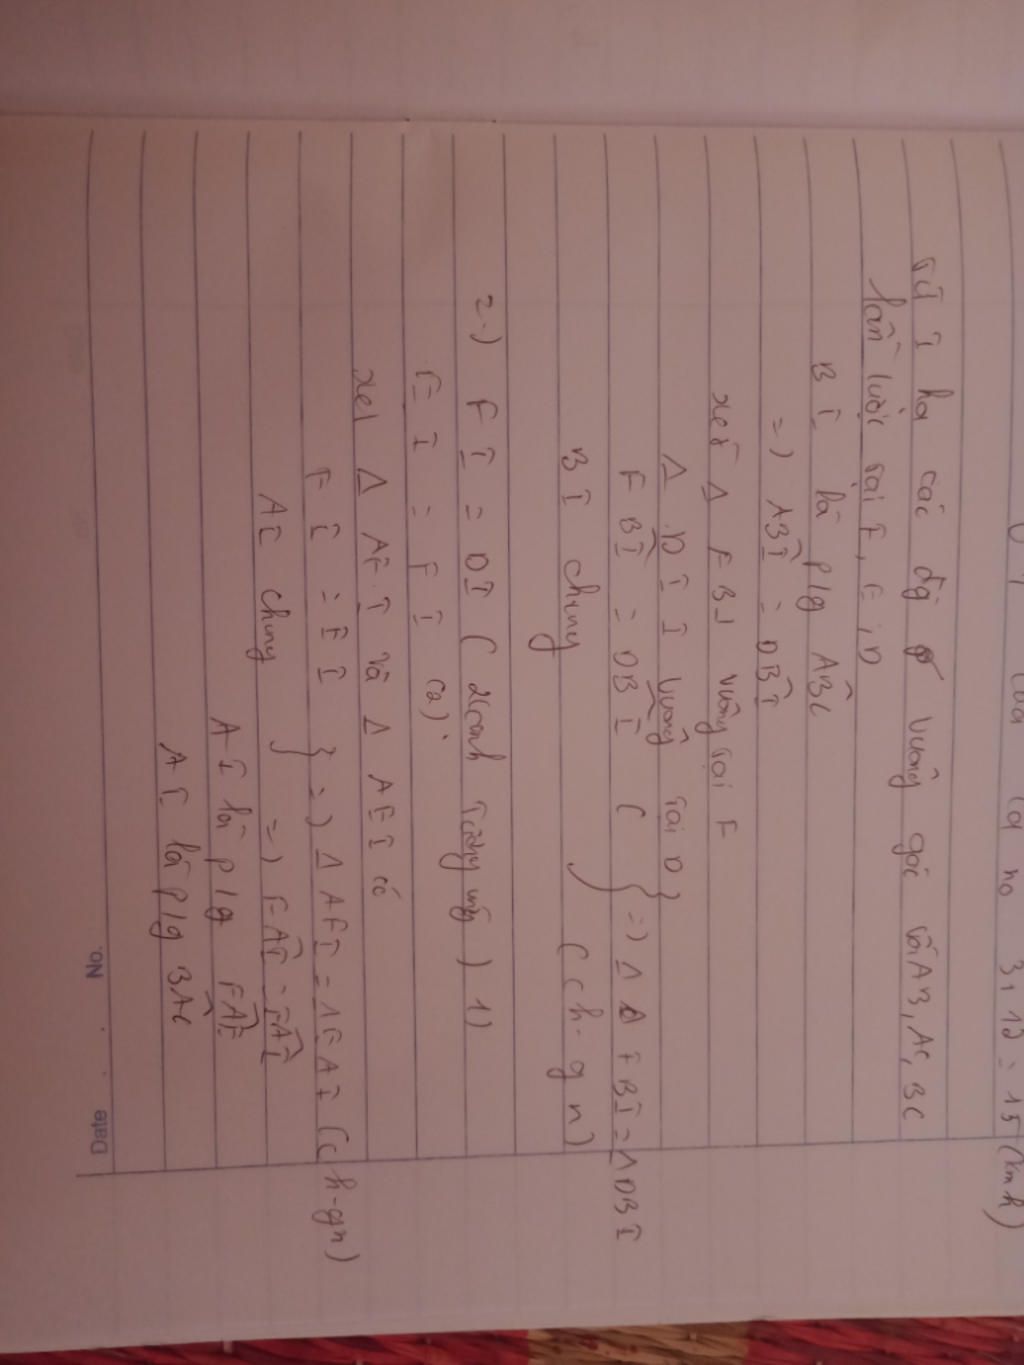 của ca nô 3,12 = 15 (km/h)
Từ I hạ các đg vuông góc với AB, AC, BC
lần lượt tại F, E, D
BI là p/g ABC
=) ABI = DBI
xét Δ FBI vuông tại F
Δ DII vuông tại D } =) Δ FBI = Δ DBI
FBI = DBI ( (ch-gn)
BI chung
=) FI = DI (2 cạnh tương ứng) 1)
EI = FI (2)
xét Δ AFI và Δ AEI có
FI = EI } =) Δ AFI = Δ EAI (ch-gn)
AI chung =) FAI = EAI
AI là p/g FAE
AI là p/g BAC
No.
Date . .